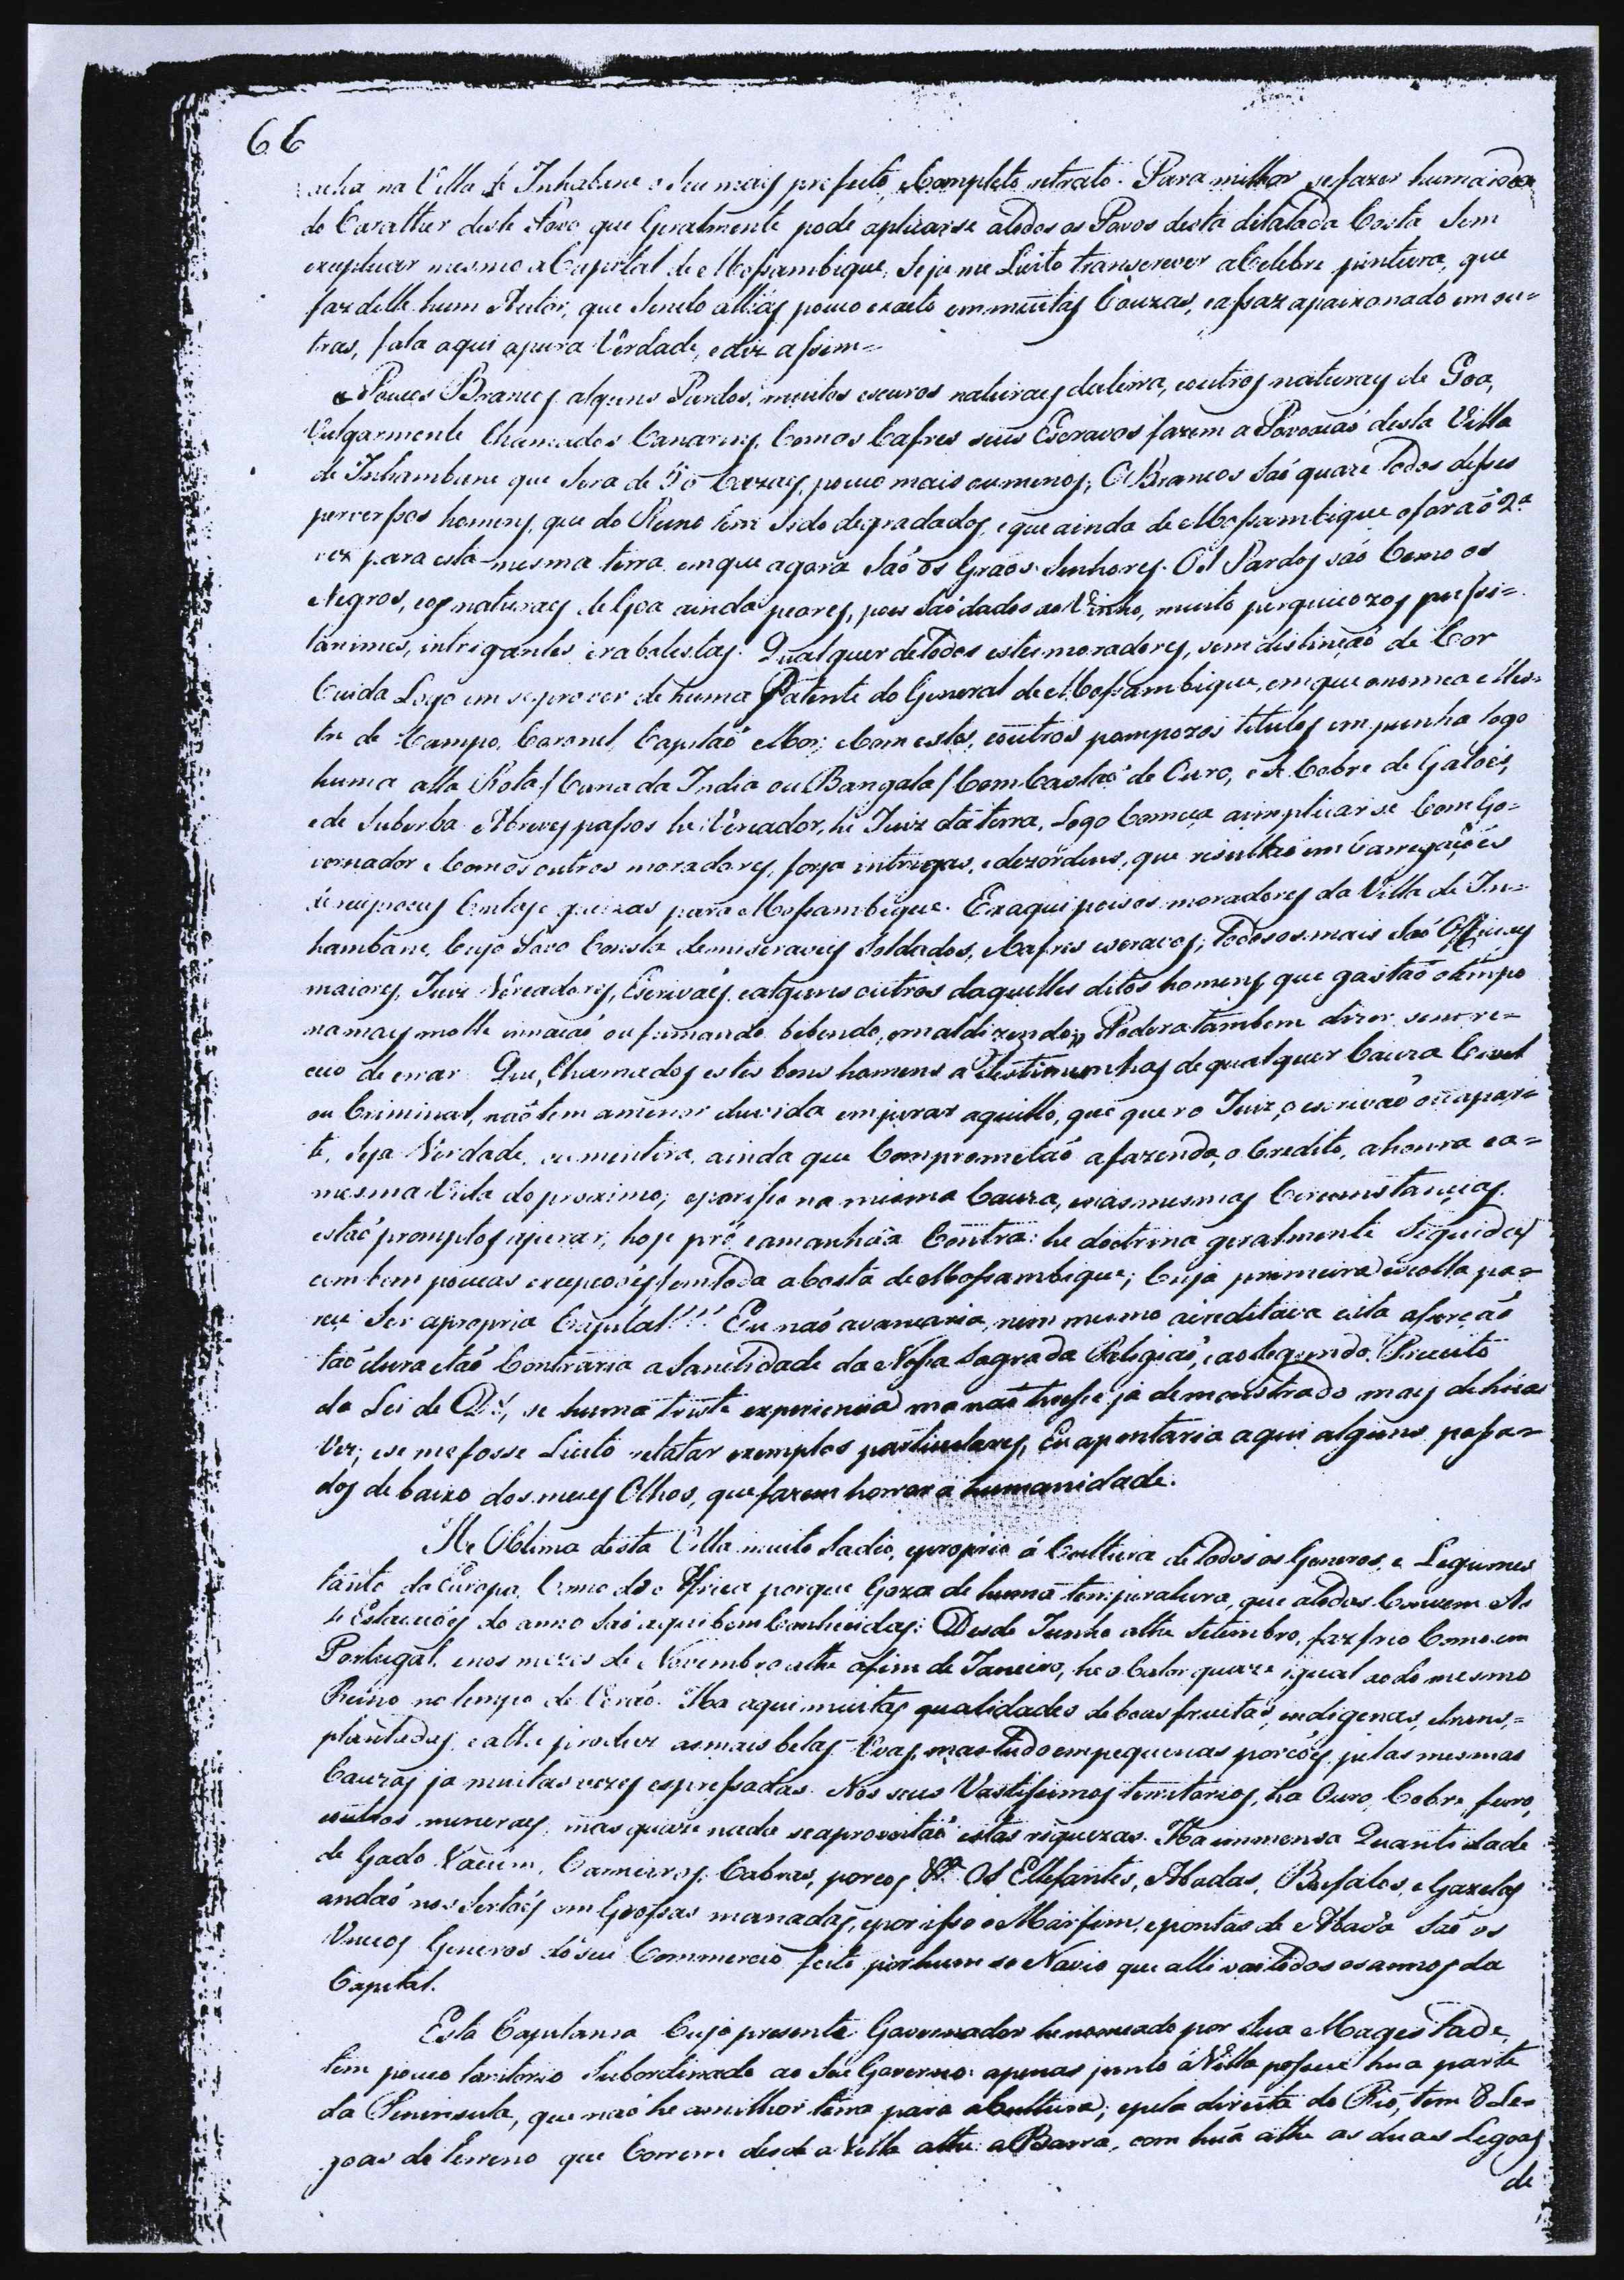 66
acha na Villa de Inhabane o Seu mais prefeito, e Completo retrato. Para milhor se fazer huma idea
do Caratter deste Povo que Geralmente pode aplicarse a todos os Povos desta dilatada Costa Sem
exceptuar mesmo a Capital de Mossambique, Seja me Licito transcrever a Celebre pintura, que
faz delle hum Autor, que Sendo alliás pouco exacto em muitas Couzas, e assaz apaixonado em ou=
tras, fala aqui a pura Verdade, e diz assim=
Poucos Brancos, alguns Pardos, muitos escuros naturaes da terra, e outros naturaes de Goa,
Vulgarmente Chamados Canarins, Com os Cafres seus Escravos fazem a Povoação desta Villa
de Inhambane que Sera de 50 Cazas, pouco mais ou menos; Os Brancos Saõ quaze todos desses
perversos homens, que do Reino tem Sido degradados, e que ainda de Mossambique o foraõ 2ª
vez para esta mesma terra em que agora Saõ os Graõs Senhores. Os Pardos saõ Como os
Negros, e os naturaes de Goa ainda peores, pois Saõ dados ao Vinho, muito perguiçozos, pussi=
lanimes, intrigantes e rabolistas. Qualquer de todos estes moradores, sem distinçaõ de Cor
Cuida Logo em se prover de huma Patente do General de Mossambique, em que o nomea Mes=
tre de Campo, Coronel, Capitaõ Mor; e Com estes, e outros pompozos titulos em punha logo
huma alta Rota / Cana da India ou Bangala / Com Castaõ de Ouro, e se Cobre de Galoēs,
e de Suberba. A breves passos he Vereador, he Juiz da terra, Logo Começa a implicar se Com Go=
vernador e Com os outros moradores, forja intrigas, e dezordens, que rezultaõ em Carregaçoēs
reciprocas Contas, e queixas para Mossambique. Ex aqui pois os moradores da Villa de In=
hambane, Cujo Povo Consta de miseraveis Soldados, e Cafres escravos; Todos os mais Saõ Officiaes
maiores, Juiz Vereadores, Escrivães, e alguns outros daquelles ditos homens que gastaõ o tempo
na mais molle innaçaõ ou fumando, bebendo, e maldizendo; Podera tambem dizer sem re=
ceio de errar Que, Chamados estes bons homens a testimunhas de qualquer Cauza Civel
ou Criminal, naõ tem a menor duvida em jurar aquillo, que quer o Juiz, o escrivaõ ou a par=
te, Seja Verdade, ou mentira, ainda que Comprometaõ a fazenda, o Credito, a honra e a=
mesma Vida do proximo, e por isso na mesma Cauza, e nas mesmas Circumstancias
estaõ promptos a jurar, hoje pró e amanhãa Contra: he doctrina geralmente Seguida /
com bem poucas excepçoēs / em toda a Costa de Mossambique; Cuja primeira escolla pa=
rece Ser a propria Capital!!! Eu naõ avançaria, nem mesmo acreditava esta aserçaõ
taõ dura e taõ Contraria a Sanctidade da Nossa Sagrada Religiaõ, e ao Segundo Preceito
da Lei de Ds, se huma triste experiencia ma naõ tivesse ja demonstrado mais de huã
Vez; e se me fosse Licito relatar exemplos particulares, Eu apontaria aqui alguns passa=
dos de baixo dos meus Olhos, que fazem horror a humanidade.
He o Clima desta Villa muito Sadio, e proprio á Cultura de todos os Generos, e Legumes
tanto da Europa, Como da Africa porque Goza de huma temperatura, que a todos Convem. As
4 Estaçoēs do anno Saõ aqui bem Conhecidas: Desde Junho athe Setembro, faz frio Como em
Portugal, e nos mezes de Novembro athe o fim de Janeiro, he o Calor quaze igual ao do mesmo
Reino no tempo de Veraõ. Ha aqui muitas qualidades de boas fructas, indigenas, e trans=
plantadas, e athe produz as mais belas Uvas, mas tudo em pequenas porcoēs, pelas mesmas
Cauzas ja muitas vezes espressadas. Nos seus Vastissimos territorios, ha Ouro, Cobre, ferro,
e outros mineraes, mas quaze nada se aproveitaõ estas riquezas. Ha immensa Quantidade
de Gado Vacum, Carneiros, Cabras, porcos &ª. Os Ellefantes, Abadas, Bufalos, e Gazelas
andaõ nos Sertoēs em Grossas manadas, e por isso o Marfim, e pontas de Abada Saõ os
Unicos Generos do seu Commercio feito por hum so Navio que alli vai todos os annos da
Capital.
Esta Capitania Cujo presente Governador he nomeado por Sua Magestade,
tem pouco territorio Subordinado ao Seu Governo: apenas junto á Villa possue hua parte
da Peninsula, que naõ he a milhor terra para a Cultura; e pela direita do Rio, tem 8 Le=
goas de terreno que Correm desde a Villa athe a Barra, com huã athe as duas Legoas
de